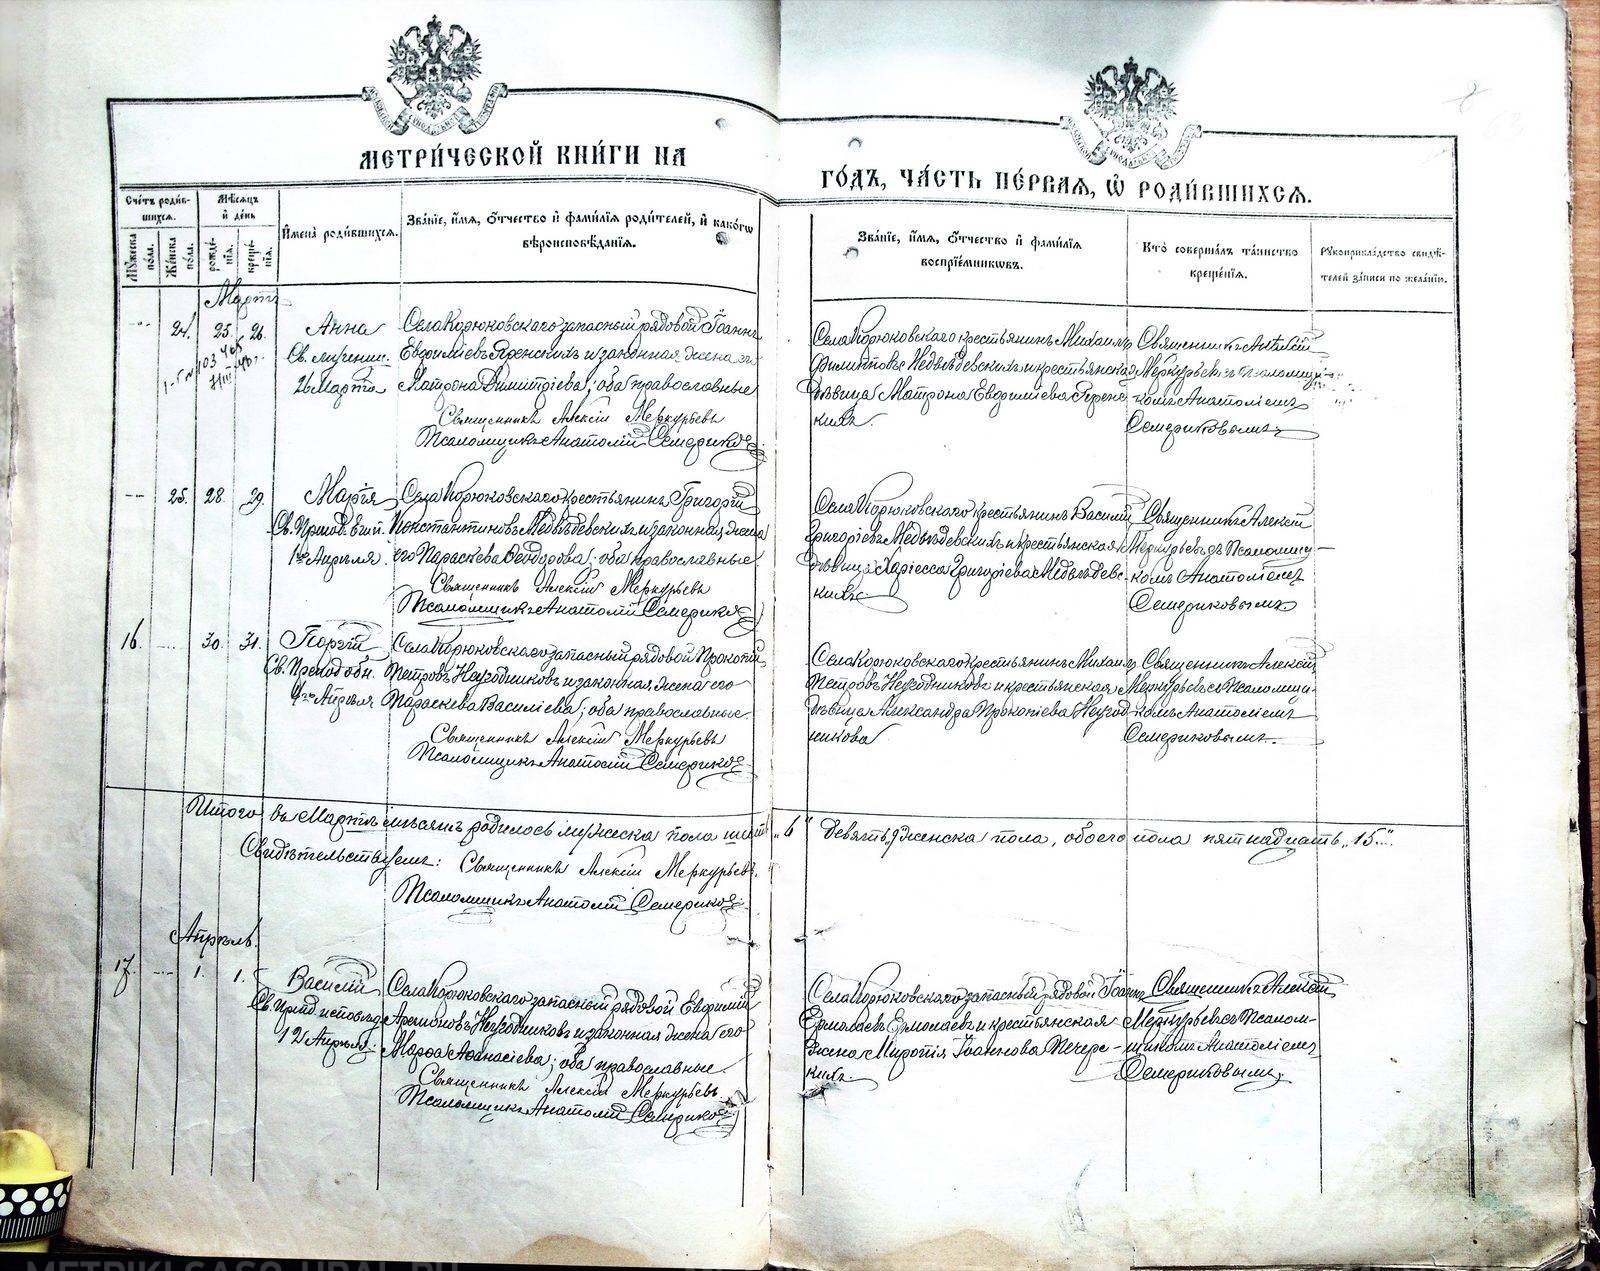 МЕТРИ́ЧЕСКОЙ КНИ́ГИ НА
ГО́ДЪ, ЧА́СТЬ ПЕ́РВАѦ, Ѡ҆ РОДИ́ВШИХСѦ.
Сче́тъ роди́в-
шихсѧ.
Мѣ́сѧцъ
и҆ де́нь
Мꙋ́жеска
по́ла.
Же́нска
по́ла.
рожде́-
нїѧ.
креще́-
нїѧ.
И҆мена̀ роди́вшихсѧ.
Зва́нїе, и҆́мѧ, ѻ҆́тчество и҆ фами́лїѧ роди́телей, и҆ како́гѡ
вѣроисповѣ́данїѧ.
Зва́нїе, и҆́мѧ, ѻ҆́тчество и҆ фами́лїѧ
воспрїе́мникѡвъ.
Кто̀ соверша́лъ та́инство
креще́нїѧ.
Рꙋкоприкла́дство свидѣ́-
телей за́писи по жела́нїю.
Мартъ
24. 25. 26.
Анна
Св. мучениц.
26 Марта
Села Корюковскаго запасный рядовой Іоаннъ
Евфиміевъ и законная жена его
Матрона Димитріева; оба православные
Священникъ Алексій Меркурьевъ
Псаломщикъ Анатолій Семериковъ
Села Корюковскаго крестьянинъ Михаилъ
Филипповъ Медвѣдевскихъ и крестьянская
дѣвица Матрона Евфиміева
кихъ.
Священникъ Алексій
Меркурьевъ съ псаломщи-
комъ Анатоліемъ
Семериковымъ
25. 28 29.
Марія
Св. Препод. Егип.
1го Апрѣля.
Села Корюковскаго крестьянинъ Григорій
Константиновъ Медвѣдевскихъ и законная жена
его Параскева Ѳеодорова; оба православные
Священникъ Алексій Меркурьевъ
Псаломщикъ Анатолій Семериковъ
Села Корюковскаго крестьянинъ Василій
Григоріевъ Медвѣдевскихъ и крестьянская
дѣвица Григоріева Медвѣдевс-
кихъ
Священникъ Алексій
Меркурьевъ съ Псаломщи-
комъ Анатоліемъ
Семериковымъ.
16. 30. 31.
Георгій
Св. Препод. обн.
4го Апрѣля
Села Корюковскаго запасный рядовой Прокопій
Петровъ Негодниковъ и законная жена его
Параскева Василіева; оба православные.
Священникъ Алексій Меркурьевъ
Псаломщикъ Анатолій Семериковъ
Села Корюковскаго крестьянинъ Михаилъ
Петровъ Негодниковъ и крестьянская
дѣвица Александра Прокопіева Негод-
никова
Священникъ Алексій
Меркурьевъ съ Псаломщи-
комъ Анатоліемъ
Семериковымъ.
Итого въ Мартѣ мѣсяцѣ родилось мужеска пола шесть „6“ девять „9“ женска пола, обоего пола пятнадцать „15“.
Свидѣтельствуемъ: Священникъ Алексій Меркурьевъ.
Псаломщикъ Анатолій Семериковъ.
Апрѣль.
17. 1. 1.
Василій
Св. Препд. исповѣд.
12 Апрѣля.
Села Корюковскаго запасный рядовой Евфимій
Негодниковъ и законная жена его
Марѳа Аѳанасіева; оба православные.
Священникъ Алексій Меркурьевъ
Псаломщикъ Анатолій Семериковъ
Села Корюковскаго запасный рядовой Іоаннъ
Ермолаевъ Ермолаевъ и крестьянская
жена Миропія Іоаннова Печерс-
кихъ.
Священникъ Алексій
Меркурьевъ съ Псалом-
щикомъ Анатоліемъ
Семериковымъ.